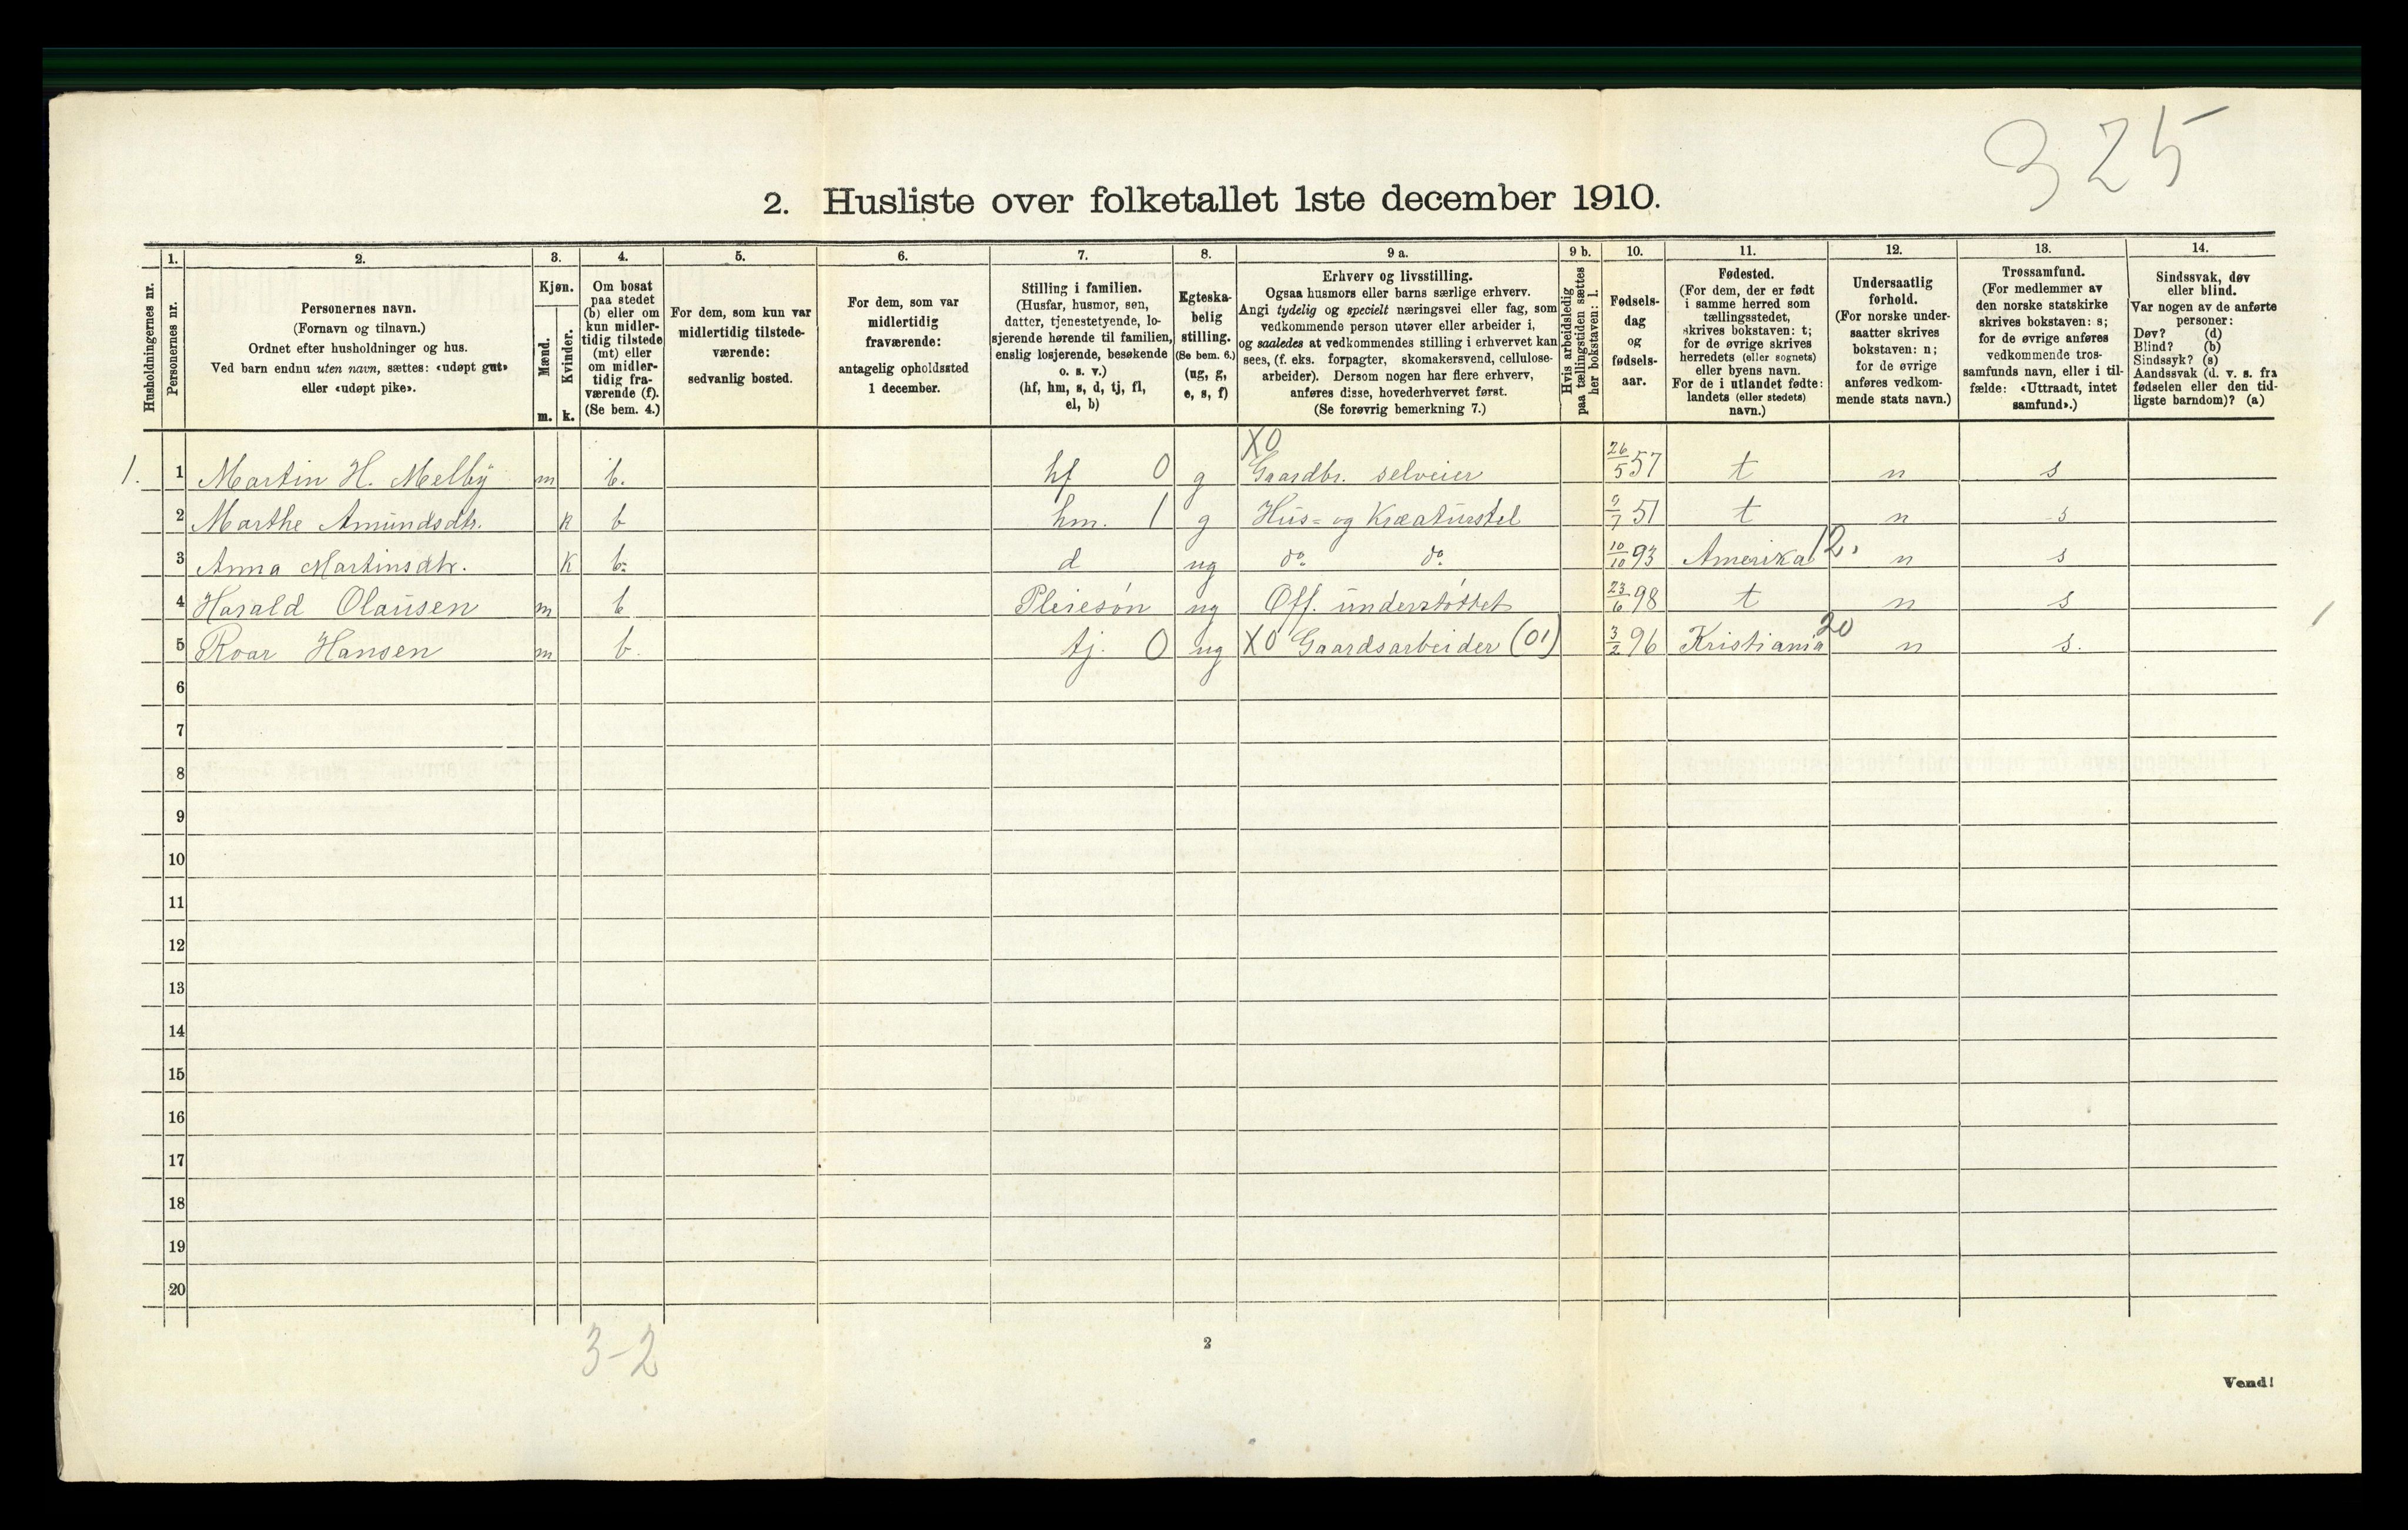 325
2. Husliste over folketallet 1ste december 1910.
Husholdningernes nr.
1.
Personernes nr.
2.
Personernes navn.
(Fornavn og tilnavn.)
Ordnet efter husholdninger og hus.
Ved barn endnu uten navn, sættes: «udøpt gut»
eller «udøpt pike».
3.
Kjøn.
Mænd.
m.
Kvinder.
k.
4.
Om bosat
paa stedet
(b) eller om
kun midler-
tidig tilstede
(mt) eller
om midler-
tidig fra-
værende (f).
(Se bem. 4.)
5.
For dem, som kun var
midlertidig tilstede-
værende:
sedvanlig bosted.
6.
For dem, som var
midlertidig
fraværende:
antagelig opholdssted
1 december.
7.
Stilling i familien.
(Husfar, husmor, søn,
datter, tjenestetyende, lo-
sjerende hørende til familien,
enslig losjerende, besøkende
o. s. v.)
(hf, hm, s, d, tj, fl,
el, b)
8.
Egteska-
belig
stilling.
(Se bem. 6.)
(ug, g,
e, s, f)
9 a.
Erhverv og livsstilling.
Ogsaa husmors eller barns særlige erhverv.
Angi tydelig og specielt næringsvei eller fag, som
vedkommende person utøver eller arbeider i,
og saaledes at vedkommendes stilling i erhvervet kan
sees, (f. eks. forpagter, skomakersvend, cellulose-
arbeider). Dersom nogen har flere erhverv,
anføres disse, hovederhvervet først.
(Se forøvrig bemerkning 7.)
9 b.
Hvis arbeidsledig
paa tællingstiden sættes
her bokstaven: l.
10.
Fødsels-
dag
og
fødsels-
aar.
11.
Fødested.
(For dem, der er født
i samme herred som
tællingsstedet,
skrives bokstaven: t;
for de øvrige skrives
herredets (eller sognets)
eller byens navn.
For de i utlandet fødte:
landets (eller stedets)
navn.)
12.
Undersaatlig
forhold.
(For norske under-
saatter skrives
bokstaven: n;
for de øvrige
anføres vedkom-
mende stats navn.)
13.
Trossamfund.
(For medlemmer av
den norske statskirke
skrives bokstaven: s;
for de øvrige anføres
vedkommende tros-
samfunds navn, eller i til-
fælde: «Uttraadt, intet
samfund».)
14.
Sindssvak, døv
eller blind.
Var nogen av de anførte
personer:
Døv? (d)
Blind? (b)
Sindssyk? (s)
Aandssvak (d. v. s. fra
fødselen eller den tid-
ligste barndom)? (a)
X0
1. 1 Martin H. Melby m b. hf 0 g Gaardbr. selveier 26/5 57 t n s
2 Marthe Amundsdtr. k b hm. 1 g Hus- og Kreaturstel 9/7 51 t n s
3 Anna Martinsdtr. k b. d ug do do 10/10 93 Amerika 12. n s
4 Harald Olausen m b Pleiesøn ug Off. understøttet 23/6 98 t n s
5 Roar Hansen m b. tj. 0 ug X0 Gaardsarbeider (01) 3/2 96 Kristiania 20 n s.
6
7
8
9
10
11
12
13
14
15
16
17
18
19
20
3-2
2
Vend!